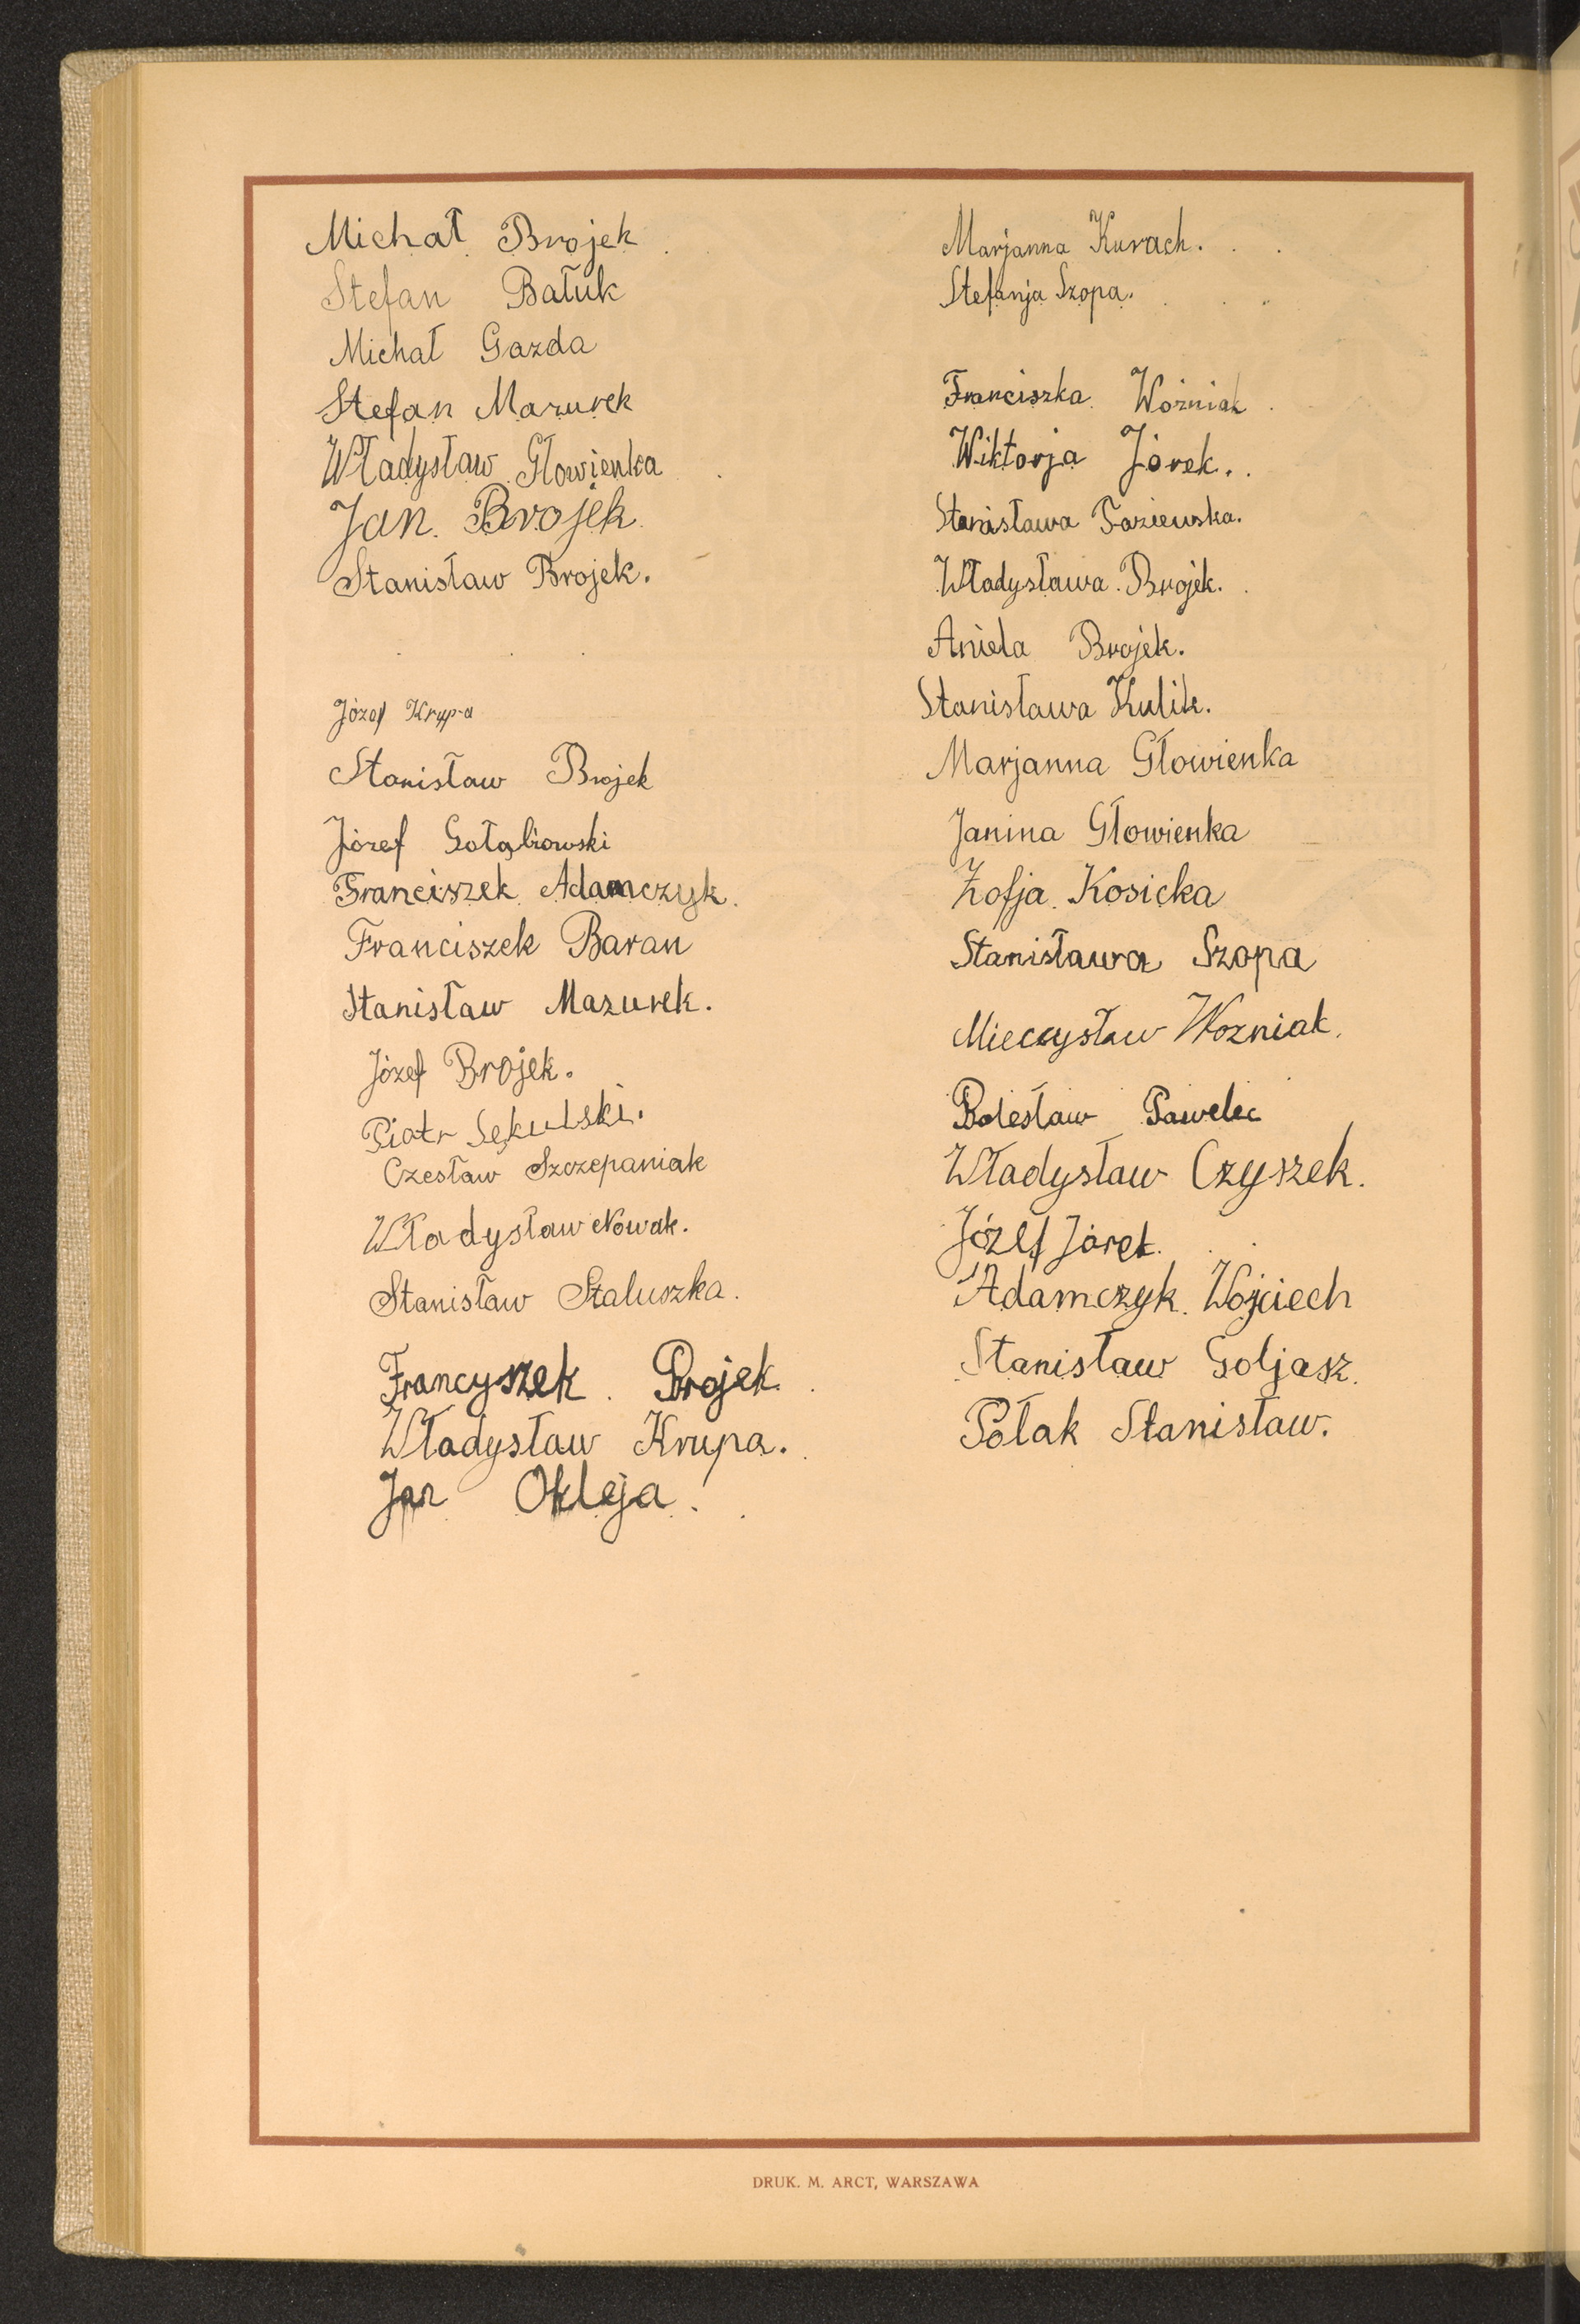 Michał Brojek
Stefan Bałuk
Michał Gazda
Stefan Mazurek
Władysław Głowienka
Jan. Brojek.
Stanisław Brojek.
Józef Krupa
Stanisław Brojek
Józef Gołąbiowski
Franciszek Adamczyk.
Franciszek Baran
Stanisław Mazurek.
Józef Brojek.
Piotr Sękulski.
Czesław Szczepaniak
Władysław Nowak.
Stanisław Staluszka.
Francyszek. Brojek.
Władysław Krupa.
Jan Okleja.
Marjanna Kurach.
Stefanja Szopa.
Franciszka Woźniak
Wiktorja Jórek.
Stanisława
Władysława. Brojek.
Aniela Brojek.
Stanisława Kulik.
Marjanna Głowienka
Janina Głowienka
Zofja. Kosicka
Stanisława Szopa
Mieczysław Wozniak.
Bolesław Pawelec
Władysław Czyszek.
Józef Jórek.
Adamczyk. Wojciech
Stanisław Goljasz.
Połak Stanisław.
DRUK. M. ARCT, WARSZAWA